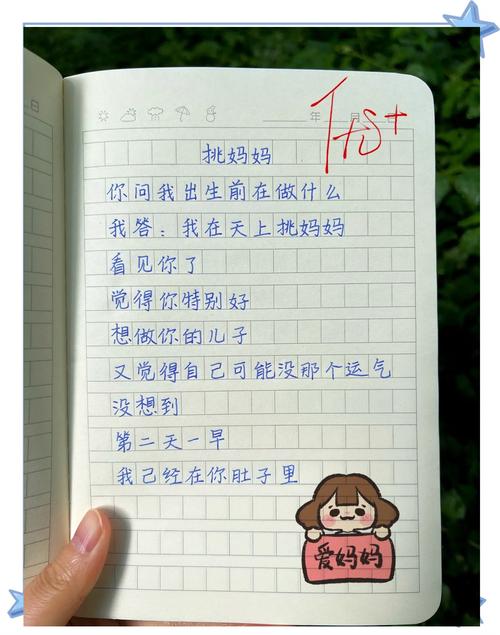 日
年 月 日
优+
挑妈妈
你问我出生前在做什么
我答：我在天上挑妈妈
看见你了
觉得你特别好
想做你的儿子
又觉得自己可能没那个运气
没想到
第二天一早
我已经在你肚子里
爱妈妈